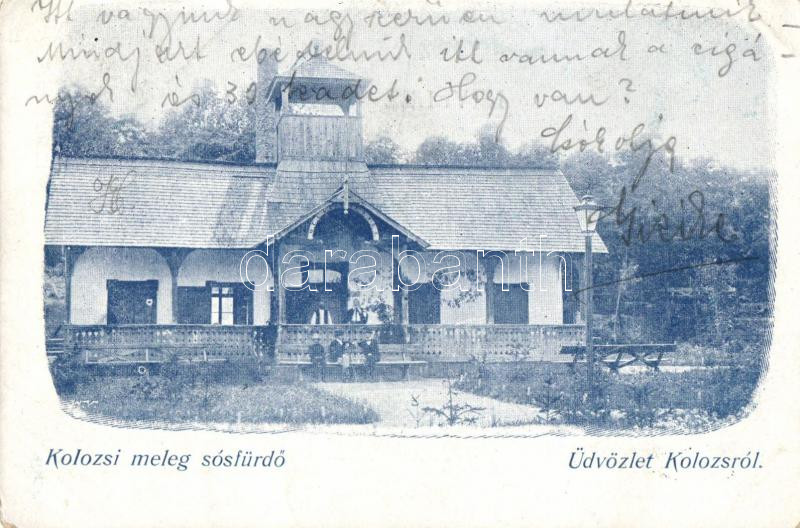 Itt vagyunk nagyszerüen mulatunk
Mindjárt ebédelünk itt vannak a cigá-
nyok és 30 kadet. Hogy van?
Csókolja
Gizike
darabanth
Kolozsi meleg sósfürdő
Üdvözlet Kolozsról.